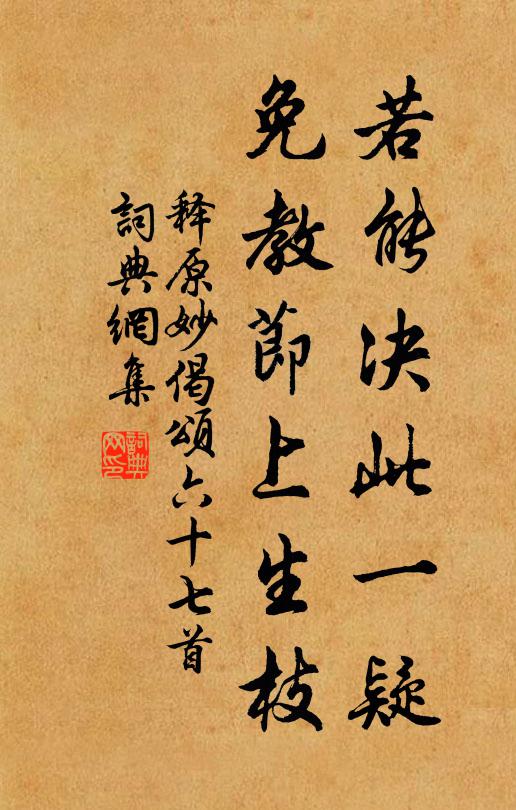 若能决此一疑
免教節上生枝
释原妙偈頌六十七首
詞典網集
詞典網印